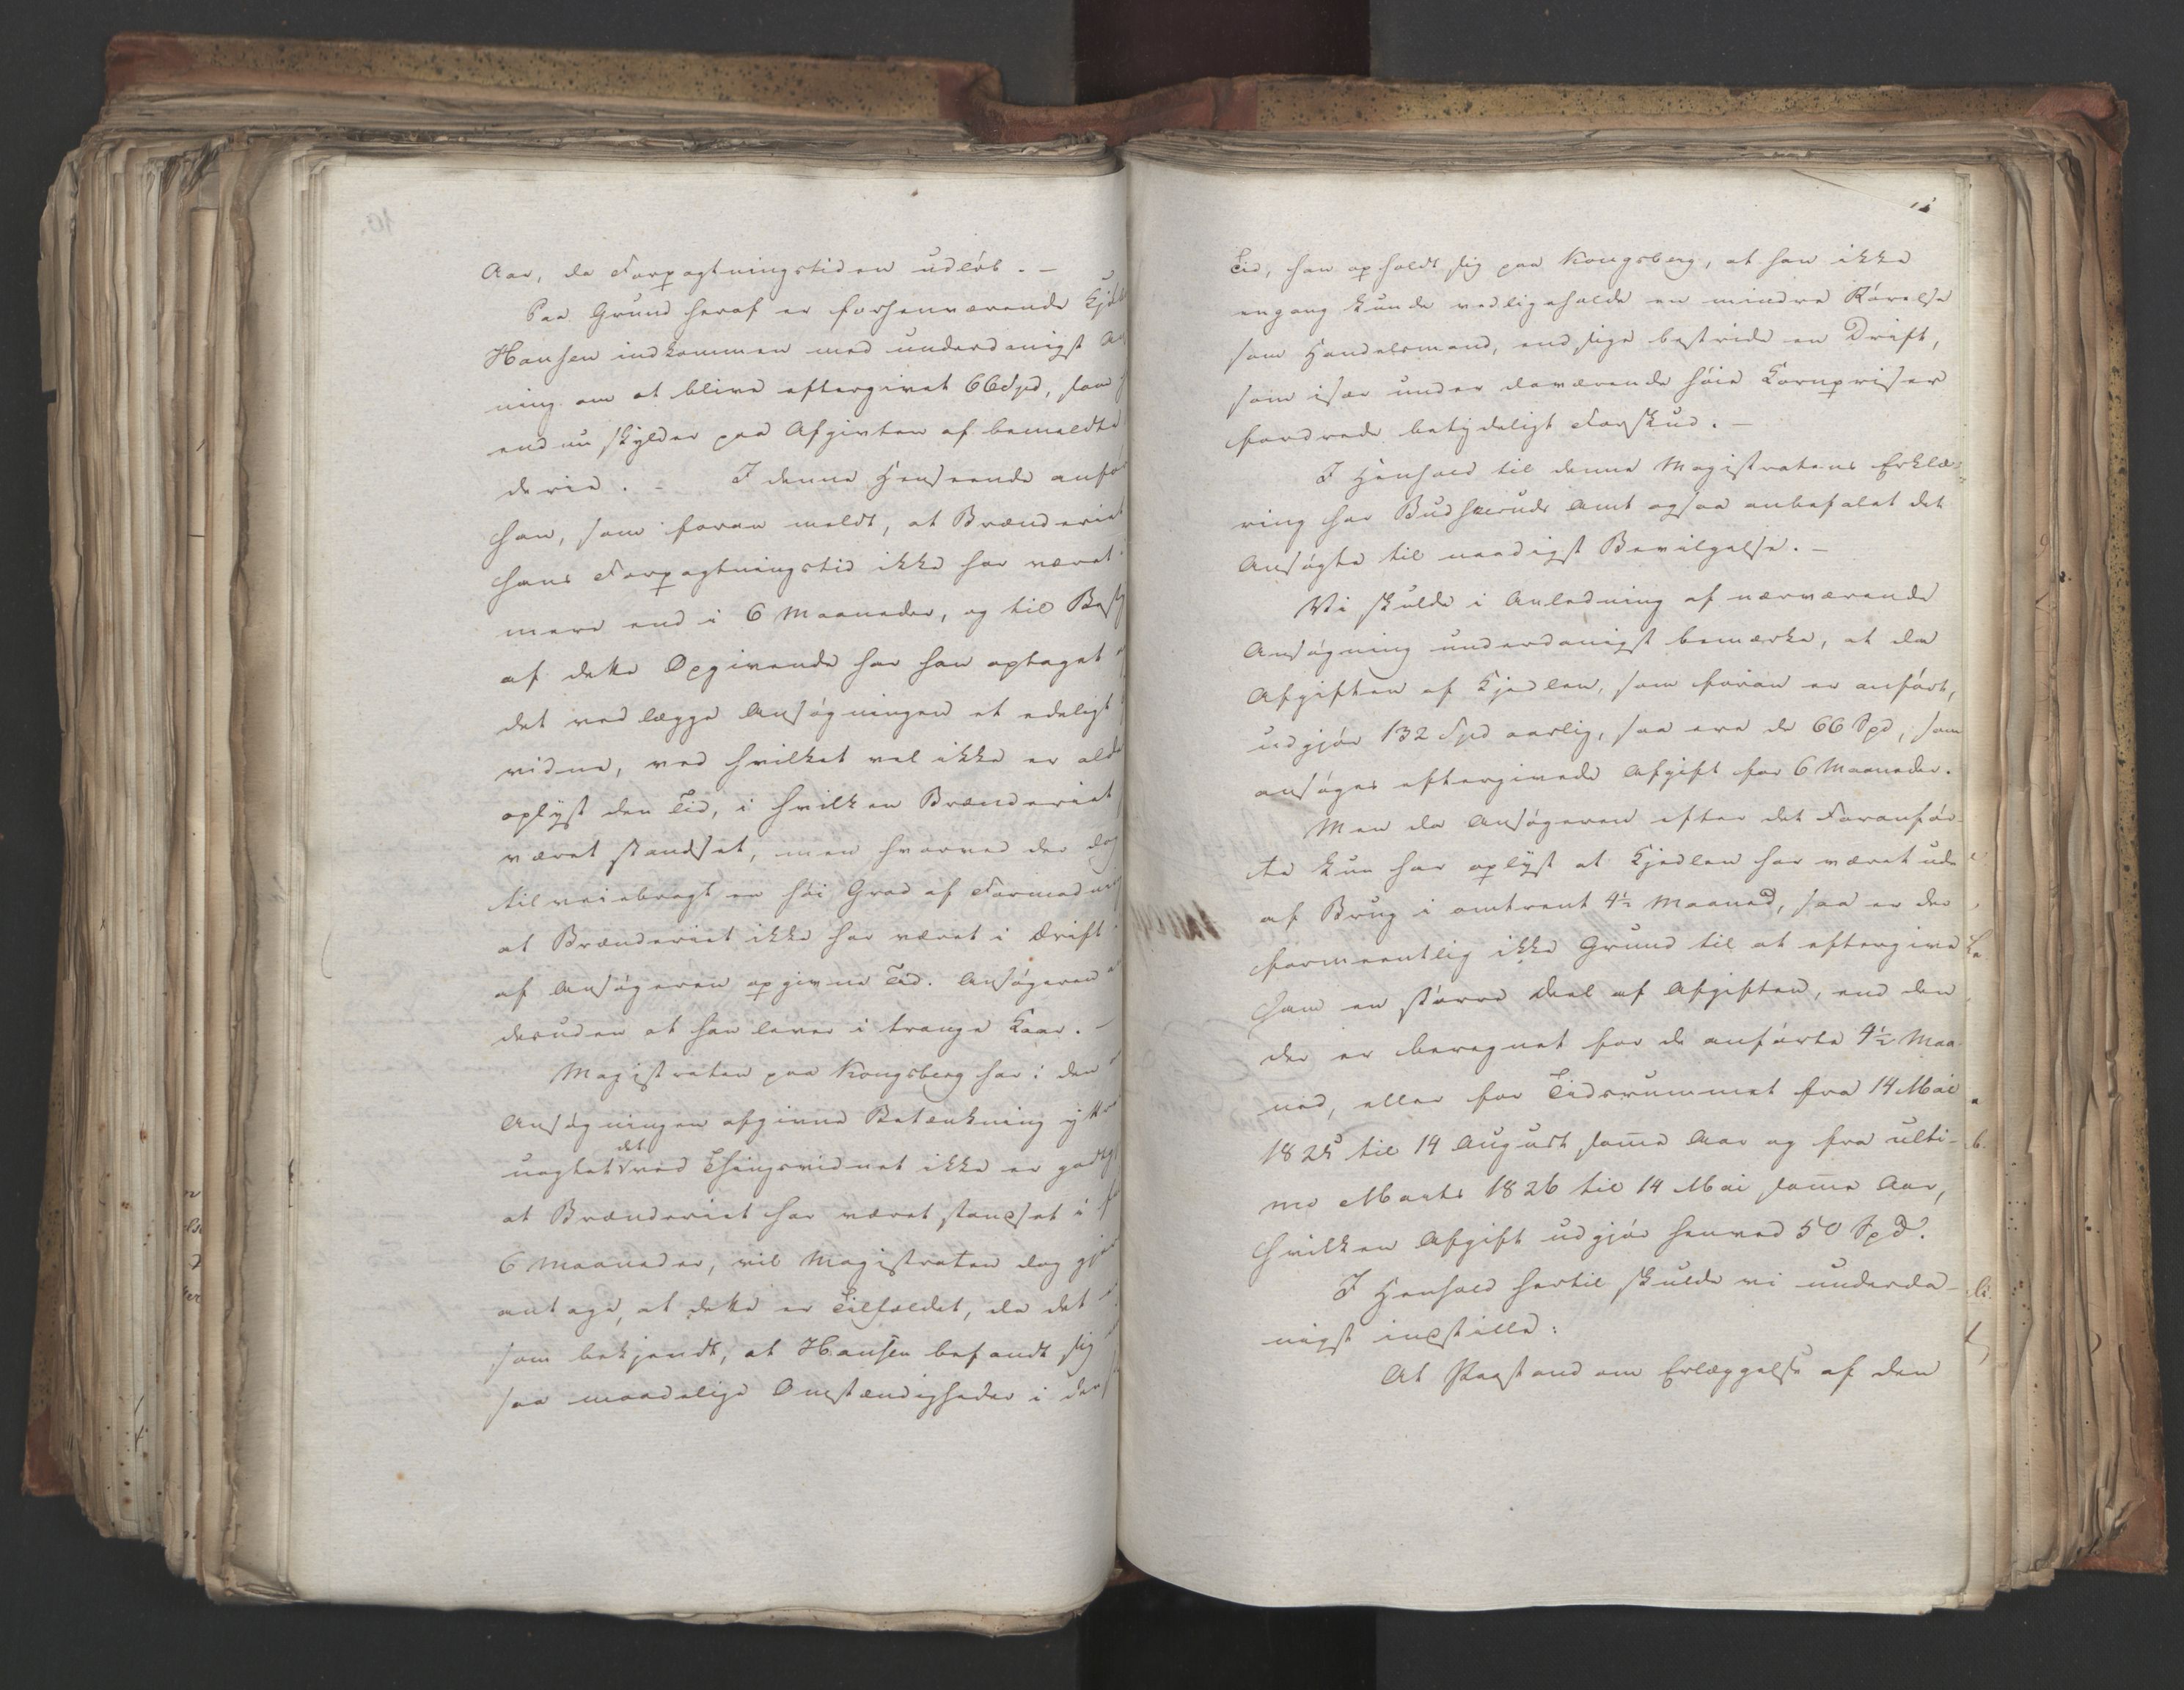 Aar, da Forpagtningstiden udløb. –
Paa Grund heraf er forhenværende
Hansen indkommen med underdanigst
ning om at blive eftergivet 66 Spd, som
endnu skylder paa Afgivten af bemeldte
derie. – I denne Henseende anfø
han, som foran meldt, at Brænderiet
hans Forpagtningstid ikke har været
mere end i 6 Maaneder, og til
af dette Opgivende har han optaget
det ved lægge Ansøgningen et edeligt
vidne, ved hvilket vel ikke er
oplyst den Tid, i hvilken Brænderiet
været standset, men hvorved der dog
tilveiebragt en høi Grad af Formodning
at Brænderiet ikke har været i Drift
af Ansøgeren opgivne Tid. Ansøgeren
desuden at han lever i trange Kaar. –
Magistraten paa Kongsberg har i den
Ansøgningen afgivne Betænkning
uagtet det ved Thingsvidnet ikke er
at Brænderiet har været standset i
6 Maaneder, vil Magistraten dog
antage, at dette er Tilfældet, da det
som bekjendt, at Hansen befandt sig
saa maadelige Omstændigheder i den
Tid, han opholdt sig paa Kongsberg, at han ikke
engang kunde vedligeholde en mindre Rørelse
som Handelsmand, endsige bestride en Drift,
som især under daværende høie Kornpriser
fordrede betydeligt Forskud. –
I Henhold til denne Magistratens Erklæ-
ring har Budskeruds Amt ogsaa anbefalet det
Ansøgte til naadigst Bevilgelse. –
Vi skulde i Anledning af nærværende
Ansøgning underdanigst bemærke, at da
Afgiften af Kjedlen, som foran er anført,
udgjør 132 Spd aarlig, saa ere de 66 Spd, som
ansøges eftergivede Afgift for 6 Maaneder.
Men da Ansøgeren efter det Foranfør-
te kun har oplyst at Kjedlen har været ude
af Brug i omtrent 4½ Maaned, saa er der
formeentlig ikke Grund til at eftergive
ham en større Deel af Afgiften, end den
der er beregnet for de anførte 4½ Maa-
ned, eller for Tidsrummet fra 14 Mai
1825 til 14 August same Aar og fra ulti-
mo Marts 1826 til 14 Mai same Aar,
hvilken Afgift udgjør henved 50 Spd.
I Henhold hertil skulde vi underda-
nigst indstille:
At Paastand om Erlæggelse af den